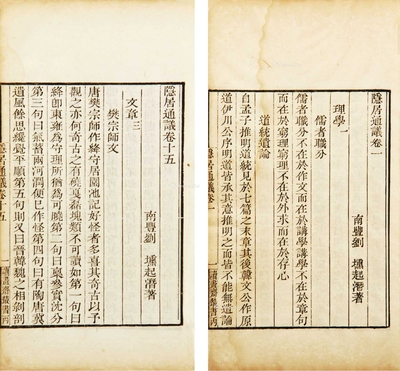 隱居通議卷一
南豐劉 壎起潛著
理學一
儒者職分
儒者職分不在於作文而在於講學講學不在於章句
而在於窮理窮理不在於外求而在於存心
道統遺論
自孟子推明道統見於七篇之末章其後韓文公作原
道伊川公序明道皆承其意推明之而皆不能無遺論
隱居通議卷一 一 讀畫齋叢書丙
隱居通議卷十五
南豐劉 壎起潛著
文章三
樊宗師文
唐樊宗師作絳守居園池記好怪者多喜其奇古以予
觀之亦何奇古之有磽戛磊塊類不可讀如第一句曰
絳即東雍爲守理所猶爲可曉第二句曰稟參實沈分
第三句曰氣蓄兩河潤便已作怪第四句曰有陶唐冀
遺風餘思纔覺平順第五句則又曰晉韓魏之相剝剖
隱居通議卷十五 一 讀畫齋叢書丙